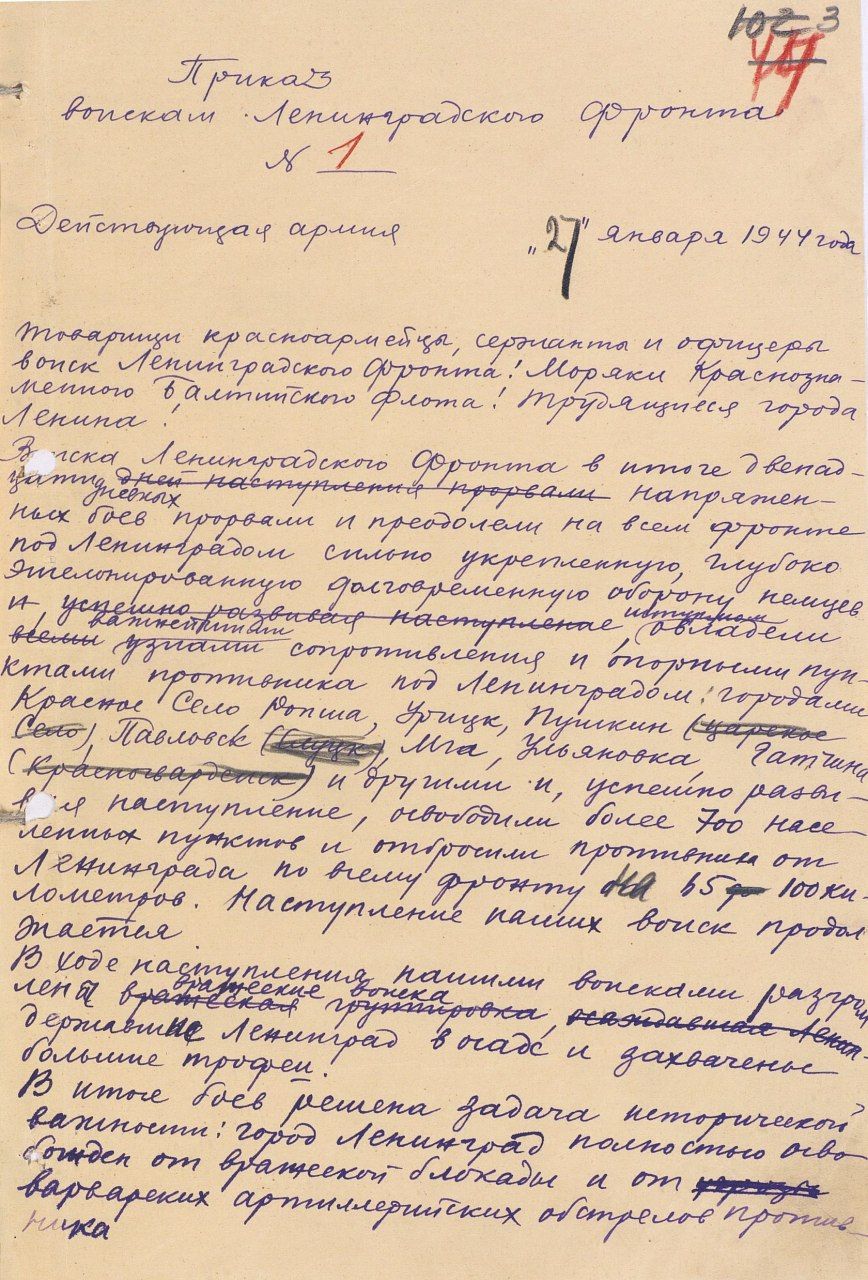 3
Приказ
воискам Ленинградского Фронта
№ 1
Действующая армия „27" января 1944 года
Товарищи красноармейцы, сержанты и офицеры
воиск Ленинградского Фронта! Моряки Краснозна-
менного Балтийского флота! Трудящиеся города
Ленина!
Воиска Ленинградского Фронта в итоге двенад-
цати дней наступления прорвали напряжен-
дневных
ных боев прорвали и преодолели на всем фронте
под Ленинградом сильно укрепленную, глубоко
эшелонированную долговременную оборону немцев
и, успешно развивая наступление, штурмом овладели
важнейшими
всеми узлами сопротивления и опорными пун-
ктами противника под Ленинградом: городами
Красное Село Ропша, Урицк, Пушкин (Царское
Село), Павловск (Слуцк), Мга, Ульяновка, Гатчина
(Красногвардейск) и другими и, успешно разви-
вая наступление, освободили более 700 насе-
ленных пунктов и отбросили противника от
Ленинграда по всему фронту на 65 до 100 ки-
лометров. Наступление наших воиск продол
жается
В ходе наступления нашими воисками разгром
вражеские воиска
лены вражеская группировка, осаждавшая Ленин-
державшие Ленинград в осаде и захвачены
большие трофеи.
В итоге боев решена задача исторической
важности: город Ленинград полностью осво-
божден от вражеской блокады и от
варварских артиллерийских обстрелов против-
ника